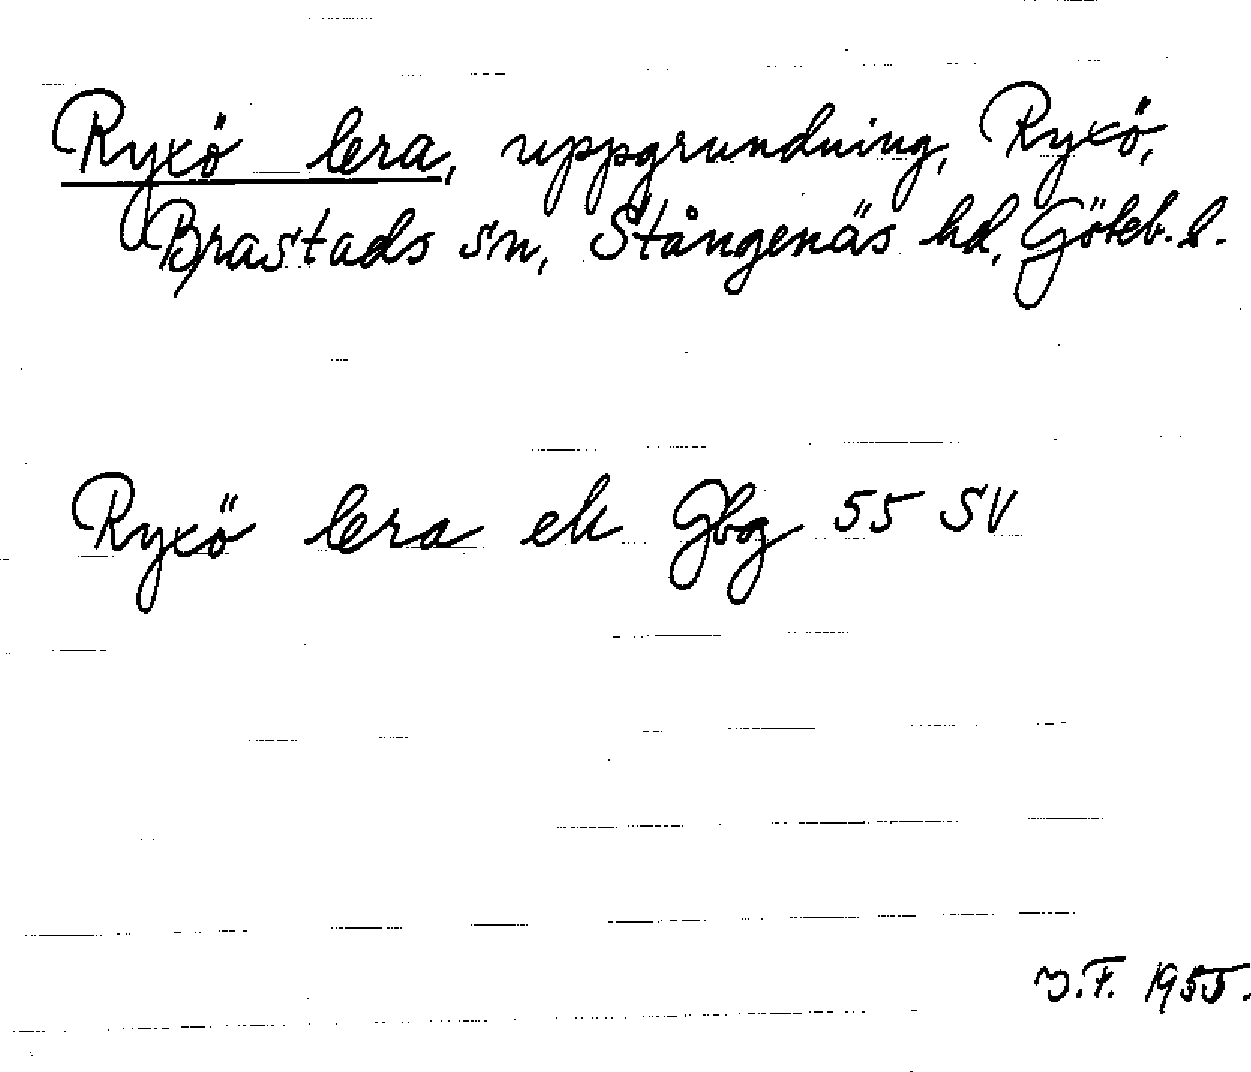 Ryxö lera, uppgrundning, Ryxö,
Brastads sn, Stångenäs hd, Göteb. l.
Ryxö lera ek Gbg 55 SV
J.F. 1955.